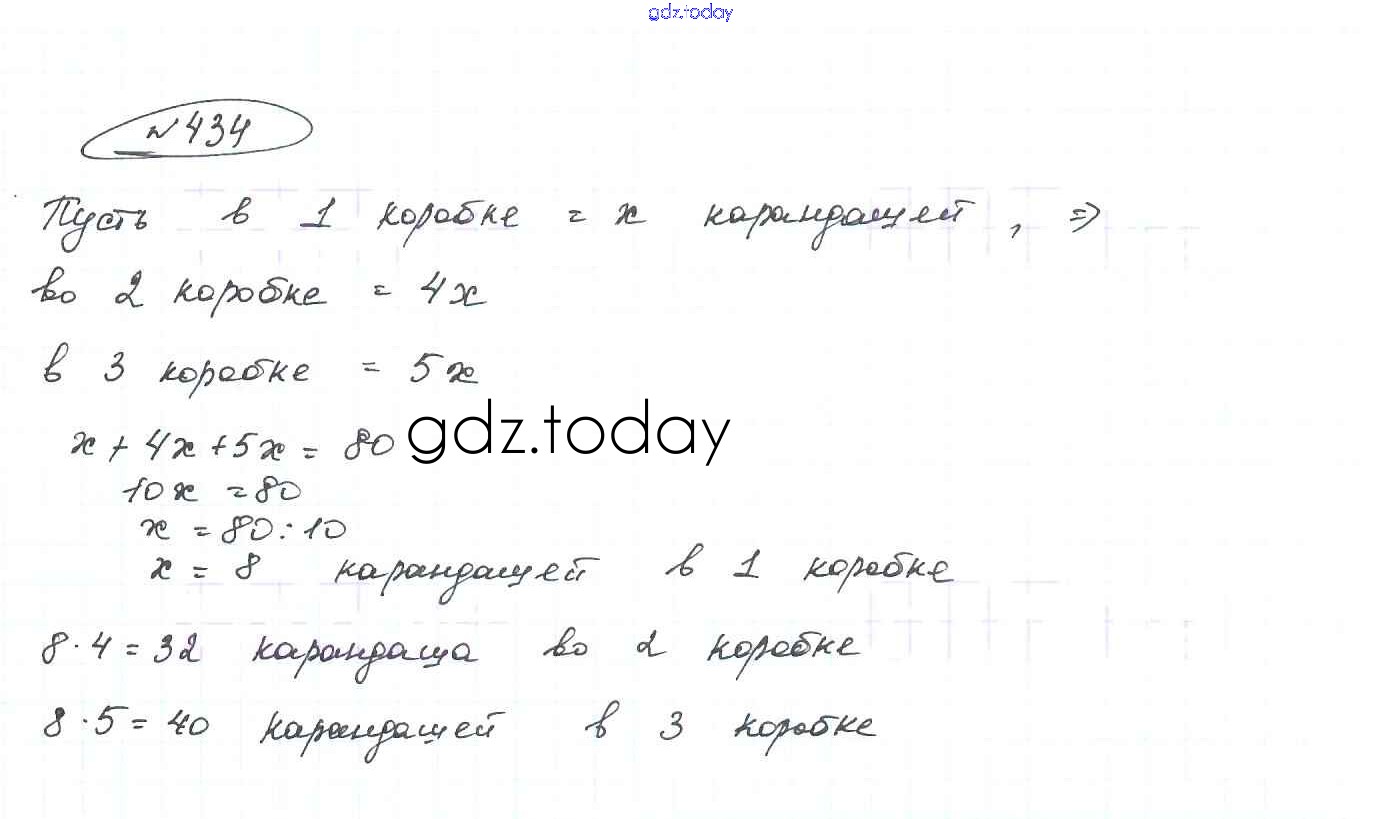 gdz.today
№434
Пусть в 1 коробке = x карандашей, =>
во 2 коробке = 4x
в 3 коробке = 5x
x + 4x + 5x = 80
gdz.today
10x = 80
x = 80 : 10
x = 8 карандашей в 1 коробке
8 · 4 = 32 карандаша во 2 коробке
8 · 5 = 40 карандашей в 3 коробке